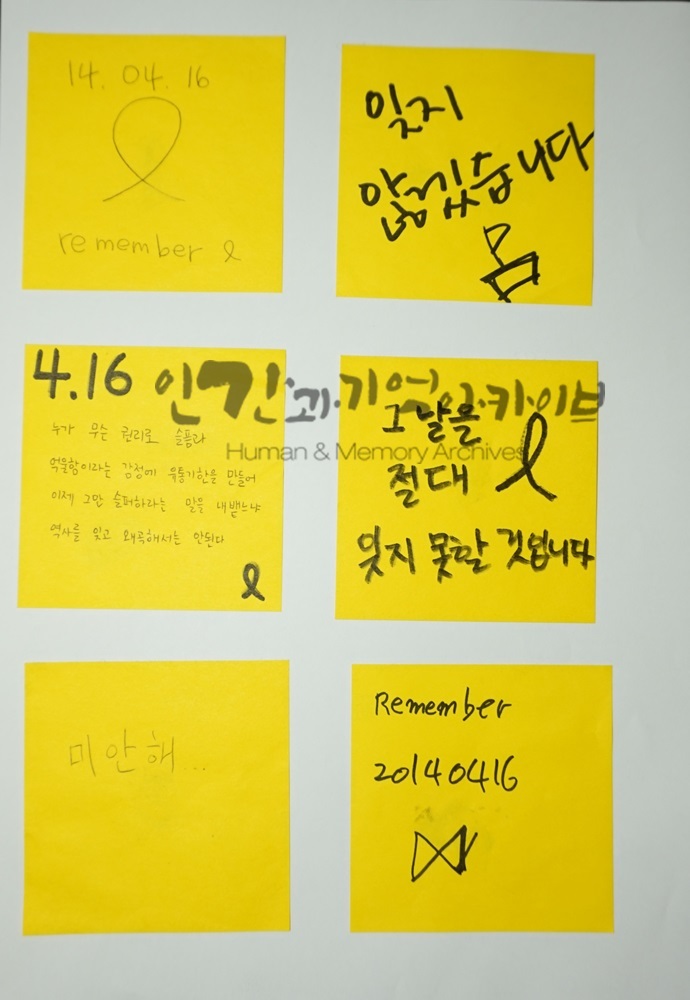 14. 04. 16
remember
잊지
않겠습니다
4.16
누가 무슨 권리로 슬픔과
억울함이라는 감정에 유통기한을 만들어
이제 그만 슬퍼하라는 말을 내뱉느냐
역사를 잊고 왜곡해서는 안된다
인간과·기억아·카·이브
Human & Memory Archives
그날을
절대
잊지 못할 것입니다
미안해...
Remember
20140416